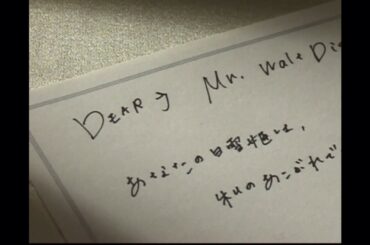 DEAR → Mr. Walt Di
あなたの は、
私のあこがれで